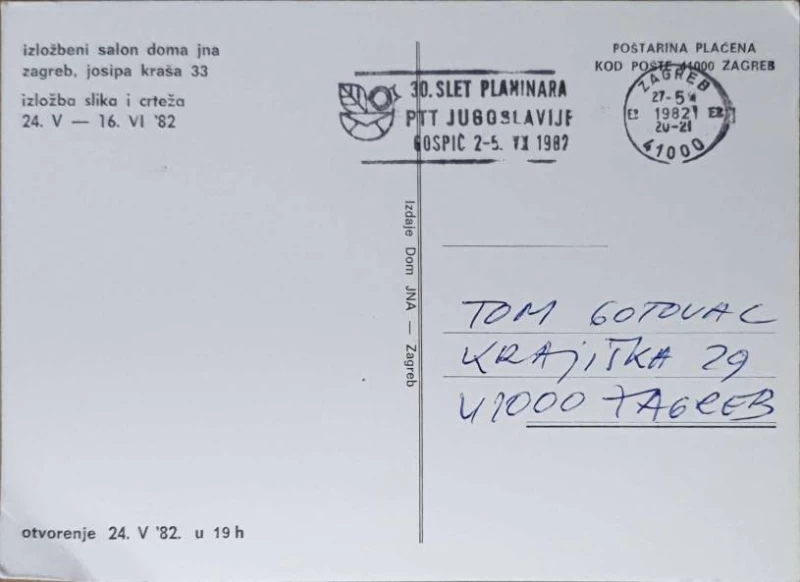 izložbeni salon doma jna
zagreb, josipa kraša 33
izložba slika i crteža
24. V — 16. VI '82
otvorenje 24. V '82. u 19 h
30. SLET PLANINARA
PTT JUGOSLAVIJE
GOSPIĆ 2-5. VI 1982
POŠTARINA PLAĆENA
KOD POŠTE 41000 ZAGREB
ZAGREB
27-5
1982
20-21
41000
Izdaje Dom JNA — Zagreb
TOM GOTOVAC
KRAJIŠKA 29
41000 ZAGREB